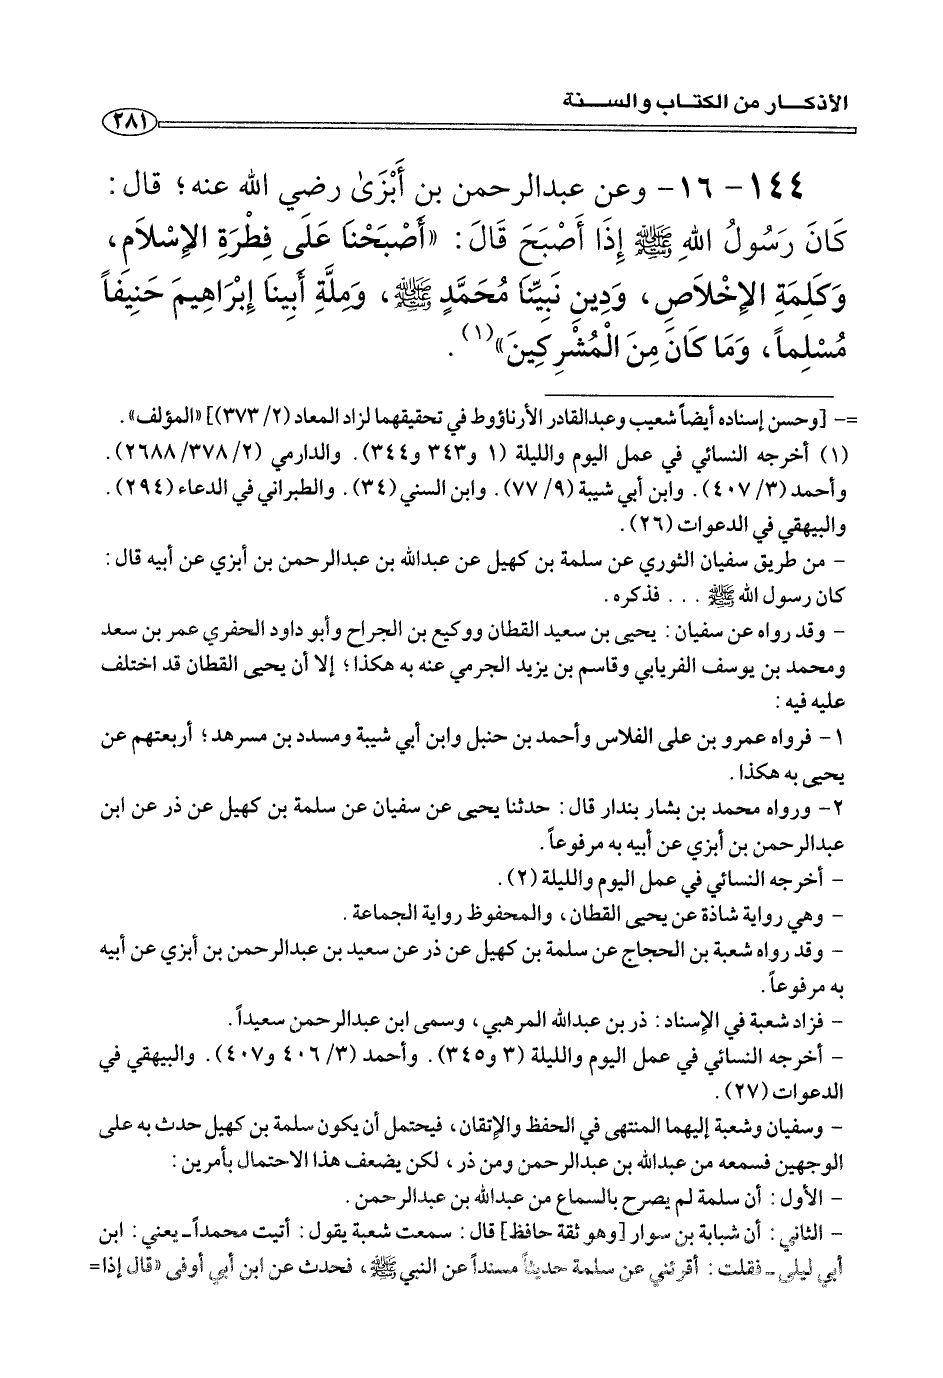 الأذكار من الكتاب والسنة
٢٨١
١٤٤ - ١٦ - وعن عبدالرحمن بن أَبْزَىٰ رضي الله عنه؛ قال:
كَانَ رَسُولُ اللهِ ﷺ إِذَا أَصْبَحَ قَالَ: «أَصْبَحْنَا عَلَى فِطْرَةِ الإِسْلَامِ،
وَكَلِمَةِ الإِخْلَاصِ، وَدِينِ نَبِيِّنَا مُحَمَّدٍ ﷺ، وَمِلَّةِ أَبِينَا إِبْرَاهِيمَ حَنِيفَاً
مُسْلِماً، وَمَا كَانَ مِنَ الْمُشْرِكِينَ»(١).
=- [وحسن إسناده أيضاً شعيب وعبدالقادر الأرناؤوط في تحقيقهما لزاد المعاد (٢/ ٣٧٣)] «المؤلف».
(١) أخرجه النسائي في عمل اليوم والليلة (١ و٣٤٣ و٣٤٤). والدارمي (٢/ ٣٧٨/ ٢٦٨٨).
وأحمد (٣/ ٤٠٧). وابن أبي شيبة (٩/ ٧٧). وابن السني (٣٤). والطبراني في الدعاء (٢٩٤).
والبيهقي في الدعوات (٢٦).
- من طريق سفيان الثوري عن سلمة بن كهيل عن عبدالله بن عبدالرحمن بن أبزي عن أبيه قال:
كان رسول الله ﷺ ... فذكره.
- وقد رواه عن سفيان: يحيى بن سعيد القطان ووكيع بن الجراح وأبو داود الحفري عمر بن سعد
ومحمد بن يوسف الفريابي وقاسم بن يزيد الجرمي عنه به هكذا؛ إلا أن يحيى القطان قد اختلف
عليه فيه:
١- فرواه عمرو بن على الفلاس وأحمد بن حنبل وابن أبي شيبة ومسدد بن مسرهد؛ أربعتهم عن
يحيى به هكذا.
٢- ورواه محمد بن بشار بندار قال: حدثنا يحيى عن سفيان عن سلمة بن كهيل عن ذر عن ابن
عبدالرحمن بن أبزي عن أبيه به مرفوعاً.
- أخرجه النسائي في عمل اليوم والليلة (٢).
- وهي رواية شاذة عن يحيى القطان، والمحفوظ رواية الجماعة.
- وقد رواه شعبة بن الحجاج عن سلمة بن كهيل عن ذر عن سعيد بن عبدالرحمن بن أبزي عن أبيه
به مرفوعاً.
- فزاد شعبة في الإسناد: ذر بن عبدالله المرهبي، وسمى ابن عبدالرحمن سعيداً.
- أخرجه النسائي في عمل اليوم والليلة (٣ و٣٤٥). وأحمد (٣/ ٤٠٦ و٤٠٧). والبيهقي في
الدعوات (٢٧).
- وسفيان وشعبة إليهما المنتهى في الحفظ والإتقان، فيحتمل أن يكون سلمة بن كهيل حدث به على
الوجهين فسمعه من عبدالله بن عبدالرحمن ومن ذر، لكن يضعف هذا الاحتمال بأمرين:
- الأول: أن سلمة لم يصرح بالسماع من عبدالله بن عبدالرحمن.
- الثاني: أن شبابة بن سوار [وهو ثقة حافظ] قال: سمعت شعبة يقول: أتيت محمداً ـ يعني: ابن
أبي ليلى ـ فقلت: أقرئني عن سلمة حديثاً مسنداً عن النبي ﷺ، فحدث عن ابن أبي أوفى «قال إذا=